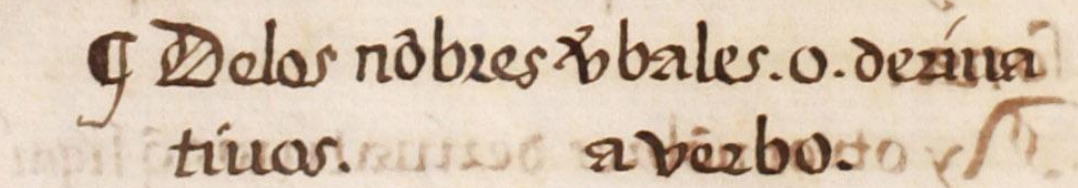 ¶ Delos nõbres v̾bales. o. deriua
tiuos. a verbo.